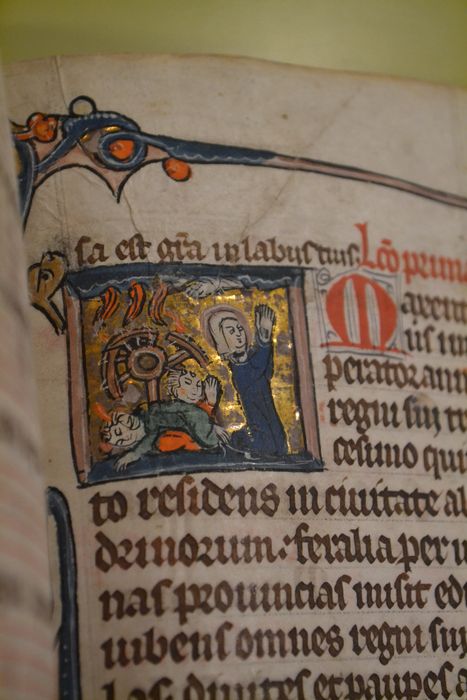 sa est gr̄a in labiis tuis. Lc̄o prima
Maxenti
us im
perator anni
regni sui te
cesimo qui
to residens in ciuitate al
drinorum. feralia per u
nas prouincias misit edi
iubens omnes regni sui
las diuites et paupes a